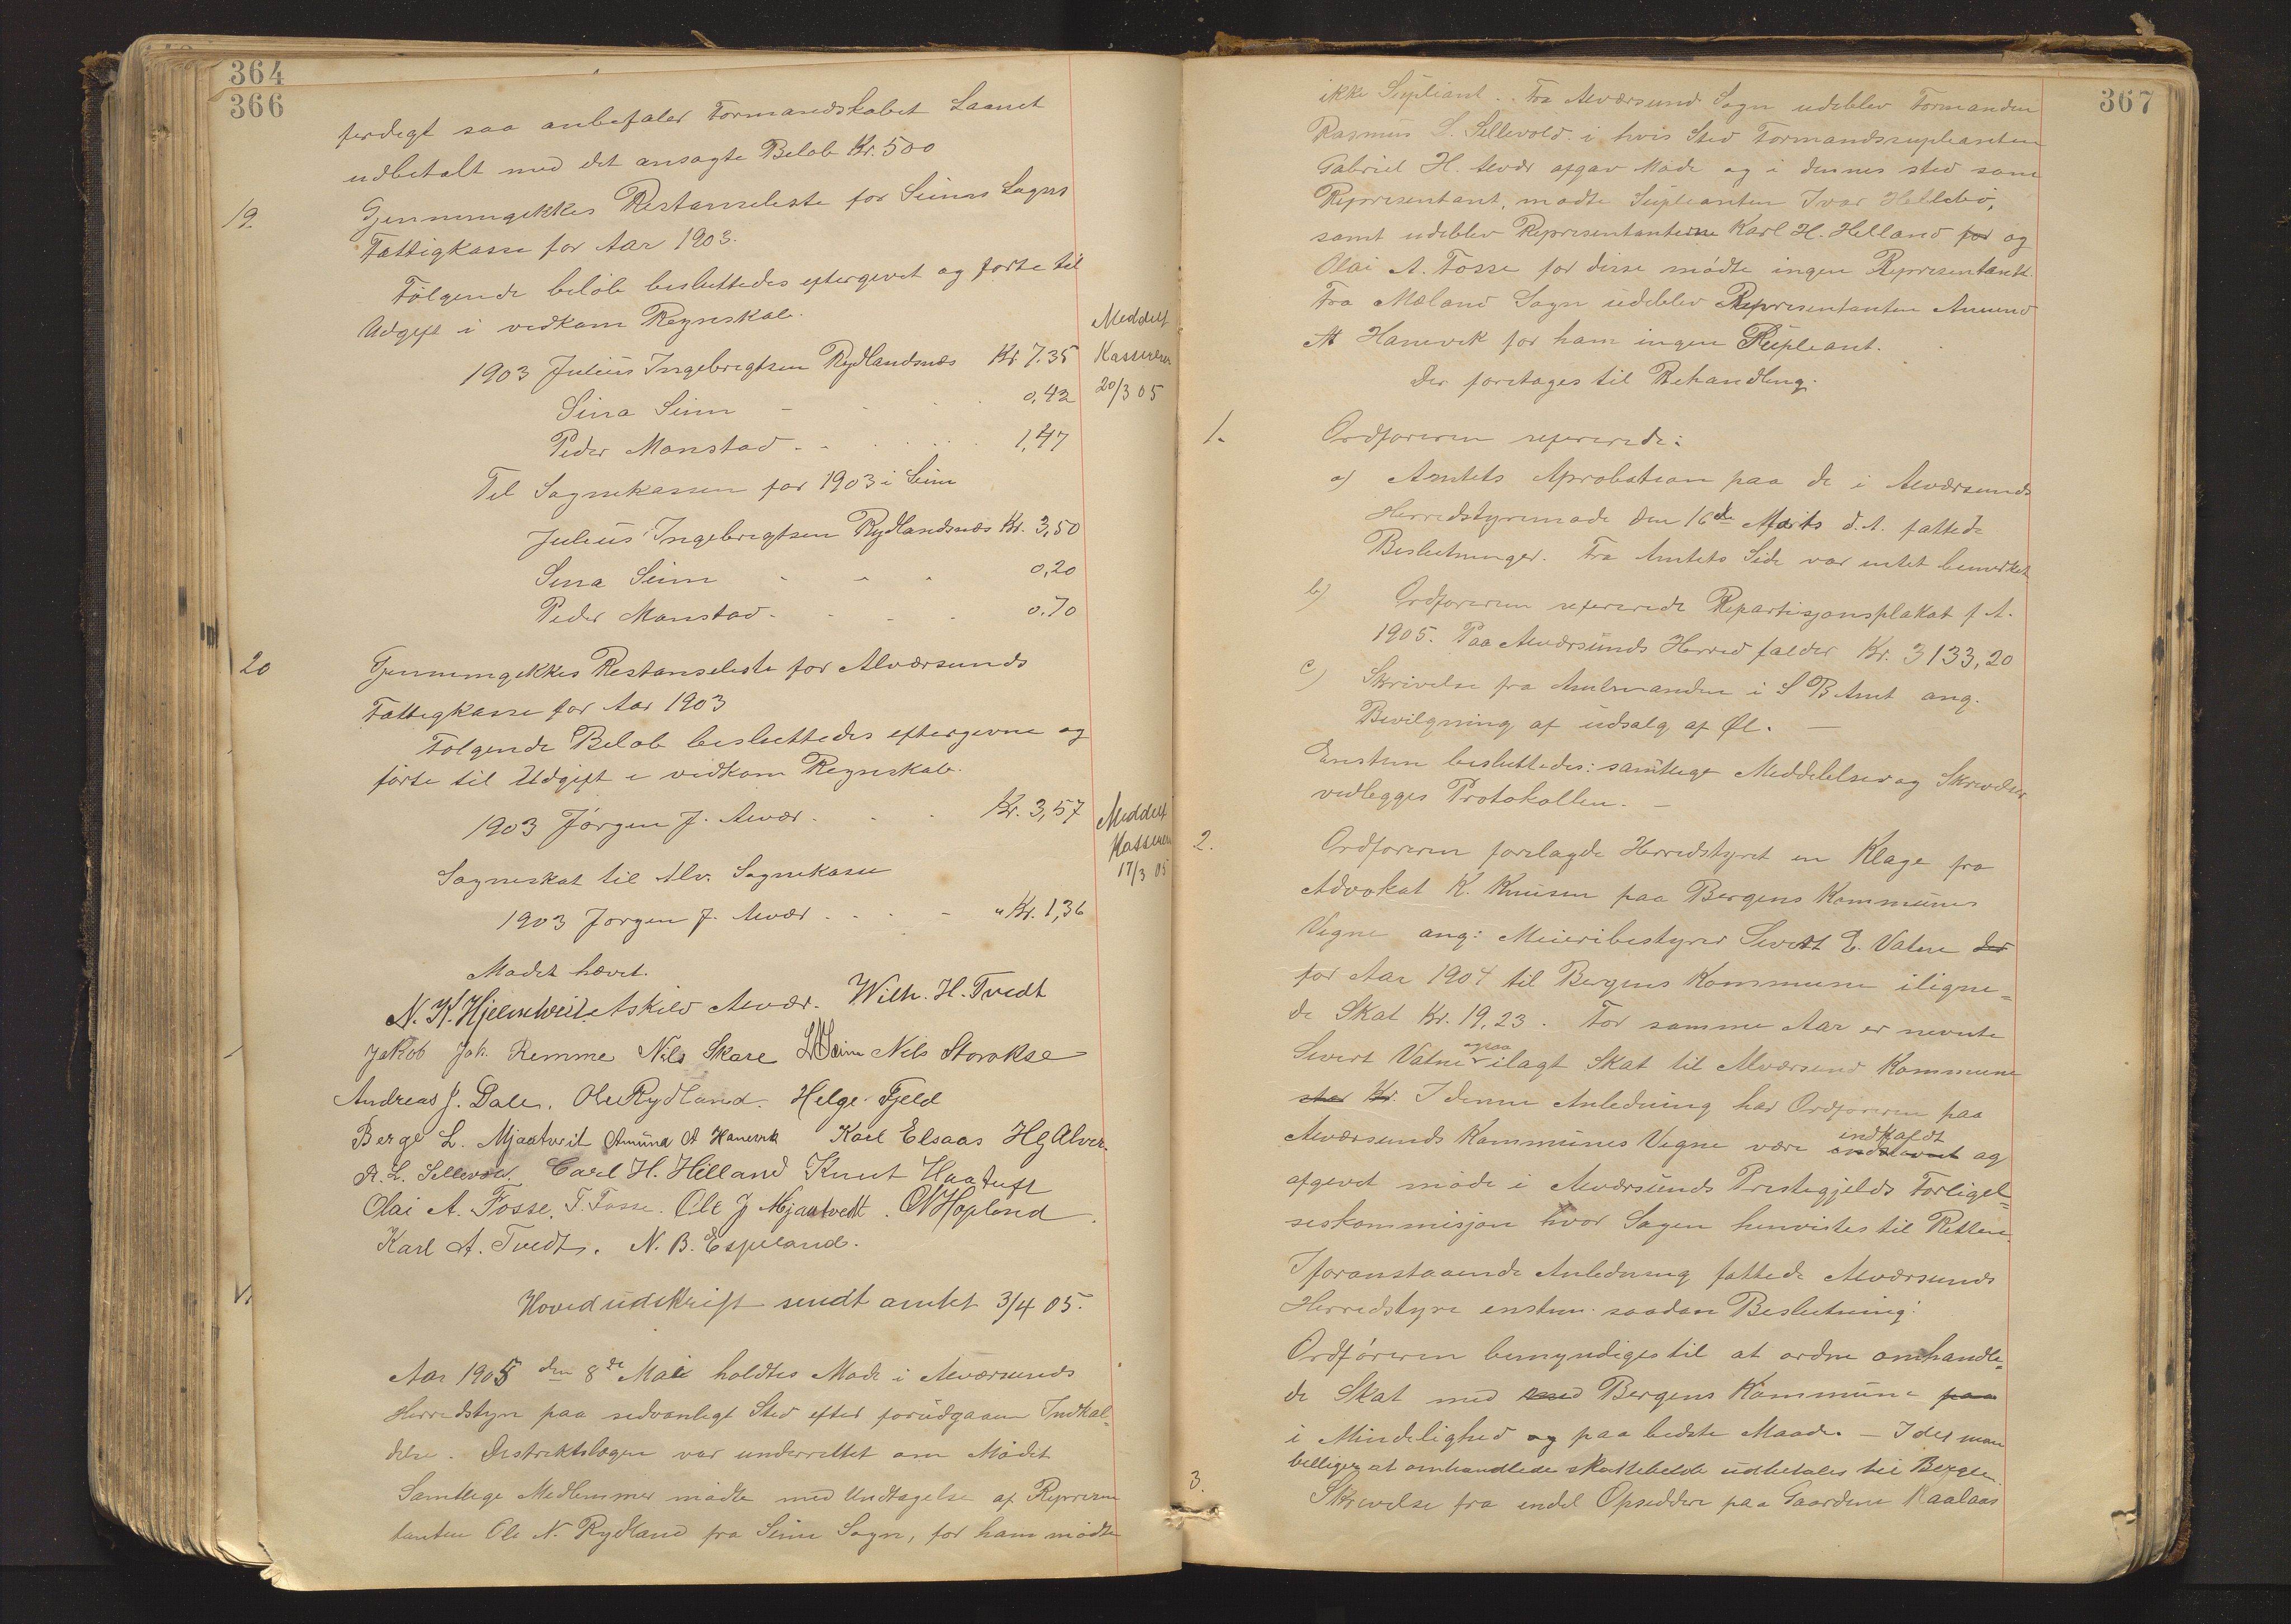 364
366
ferdigt saa anbefaler Formandskabet Laanet
udbetalt med det ansøgte Beløb Kr. 500
19. Gjennemgikkes Restanseliste for Seims Sogns
Fattigkasse for Aar 1903.
Følgende beløb besluttedes eftergivet og førte til
Udgift i vedkom Regnskab.
1903 Julius Ingebrigtsen Rydlandsnæs Kr. 7.35
Meddelt
Kassereren
20/3 05
Sina Seim - 0,42
Peder Monstad - 1,47
Til Sognekassen for 1903 i Seim
Julius Ingebrigtsen Rydlandsnæs Kr. 3,50
Sina Seim - 0,20
Peder Monstad - 0.70
20 Gjennemgikkes Restanseliste for Alværsunds
Fattigkasse for Aar 1903
Følgende Beløb besluttedes eftergivne og
førte til Udgift i vedkom Regnskab.
1903 Jørgen J. Alvær. Kr. 3,57
Meddelt
Kasseren
17/3 05
Sogneskat til Alv. Sognekasse
1903 Jørgen J. Alvær - " Kr. 1,36
Mødet hævet.
N. K. Hjelmtveit. Askild Alvær. Wilh. H. Tvedt
Jakob Joh. Remme Nils Skare Seim Nils Storakse
Andreas J. Dale. Ole Rydland. Helge Fjeld
Berge L. Mjaatveit Amund A Hanevik Karl Elsaas H G Alver.
R. L. Sellevold. Carl H. Helland Knut Haatuft
Olai A. Fosse. T. Fosse. Ole J Mjaatvedt. N Hopland
Karl A. Tvedt. N. B. Espeland.
Hovedudskrift sendt amtet 3/4 05.
Aar 1905 den 8de Mai holdtes Møde i Alværsunds
Herredstyre paa sedvanligt Sted efter forudgaaen Indkal=
delse. Distriktslægen var underrettet om Mødet
Samtlige Medlemmer mødte med Undtagelse af Represen
tanten Ole N. Rydland fra Seim Sogn, for ham mødte
367
ikke Supliant. Fra Alværsund Sogn udeblev Formanden
Rasmus L. Sellevold i hvis Sted Formandssupleanten
Gabriel H. Alvær afgav Møde og i dennes sted som
Representant, mødte Supleanten Ivar Hellebø,
samt udeblev Representanterne Karl H. Helland for og
Olai A. Fosse for disse mødte ingen Representant.
Fra Mæland Sogn udeblev Representanten Amund
A Hanevik for ham ingen Supleant.
Der foretages til Behandling.
1. Ordføreren refererede:
a) Amtets Aprobation paa de i Alværsunds
Herredstyremøde den 16de Marts d.A. fattede
Beslutninger. Fra Amtets Side var intet bemerket
b) Ordføreren refererede Repartisjonsplakat f A.
1905. Paa Alværsunds Herred falder Kr. 3133,20
c) Skrivelse fra Amtmanden i S B Amt ang.
Bevilgning af udsalg af Øl. —
Enstem besluttedes: samtlige Meddelelser og Skrivelser
vedlegges Protokollen. —
2. Ordføreren forelagde Herredstyret en Klage fra
Advokat K. Knusen paa Bergens Kommunes
Vegne ang: Meieribestyrer Sivert E. Vatne der
for Aar 1904 til Bergens Kommune iligne=
de Skat Kr. 19,23. For samme Aar er nevnte
Sivert Vatne ogsaa ilagt Skat til Alværsund Kommune
stor Kr. I denne Anledning har Ordføreren paa
Alværsunds Kommunes Vegne være indkaldt og
afgivet møde i Alværsunds Prestegjelds Forligel=
seskommisjon hvor Sagen henvistes til Retten.
I foranstaaende Anledning fattede Alværsunds
Herredstyre enstem. saadan Beslutning:
Ordføreren bemyndiges til at ordne omhandle=
de Skat med med Bergens Kommune paa
i Mindelighed og paa bedste Maade. — Idet man
billiger at omhandlede skattebeløb udbetales til Bergen
3. Skrivelse fra endel Opsiddere paa Gaardene Kaalaas